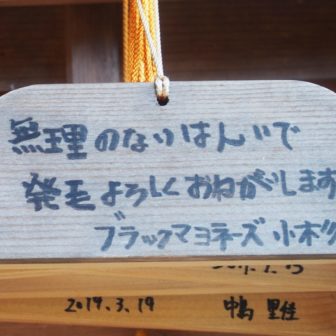 無理のないはんいで
発毛よろしくおねがします
ブラックマヨネーズ 小杉
2014.3.19